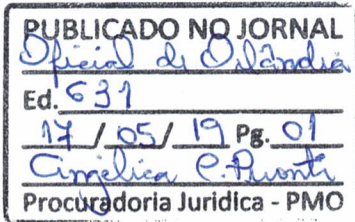 PUBLICADO NO JORNAL
Oficial de Orlândia
Ed. 631
17 / 05 / 19 Pg. 01
Angélica C.
Procuradoria Juridica - PMO